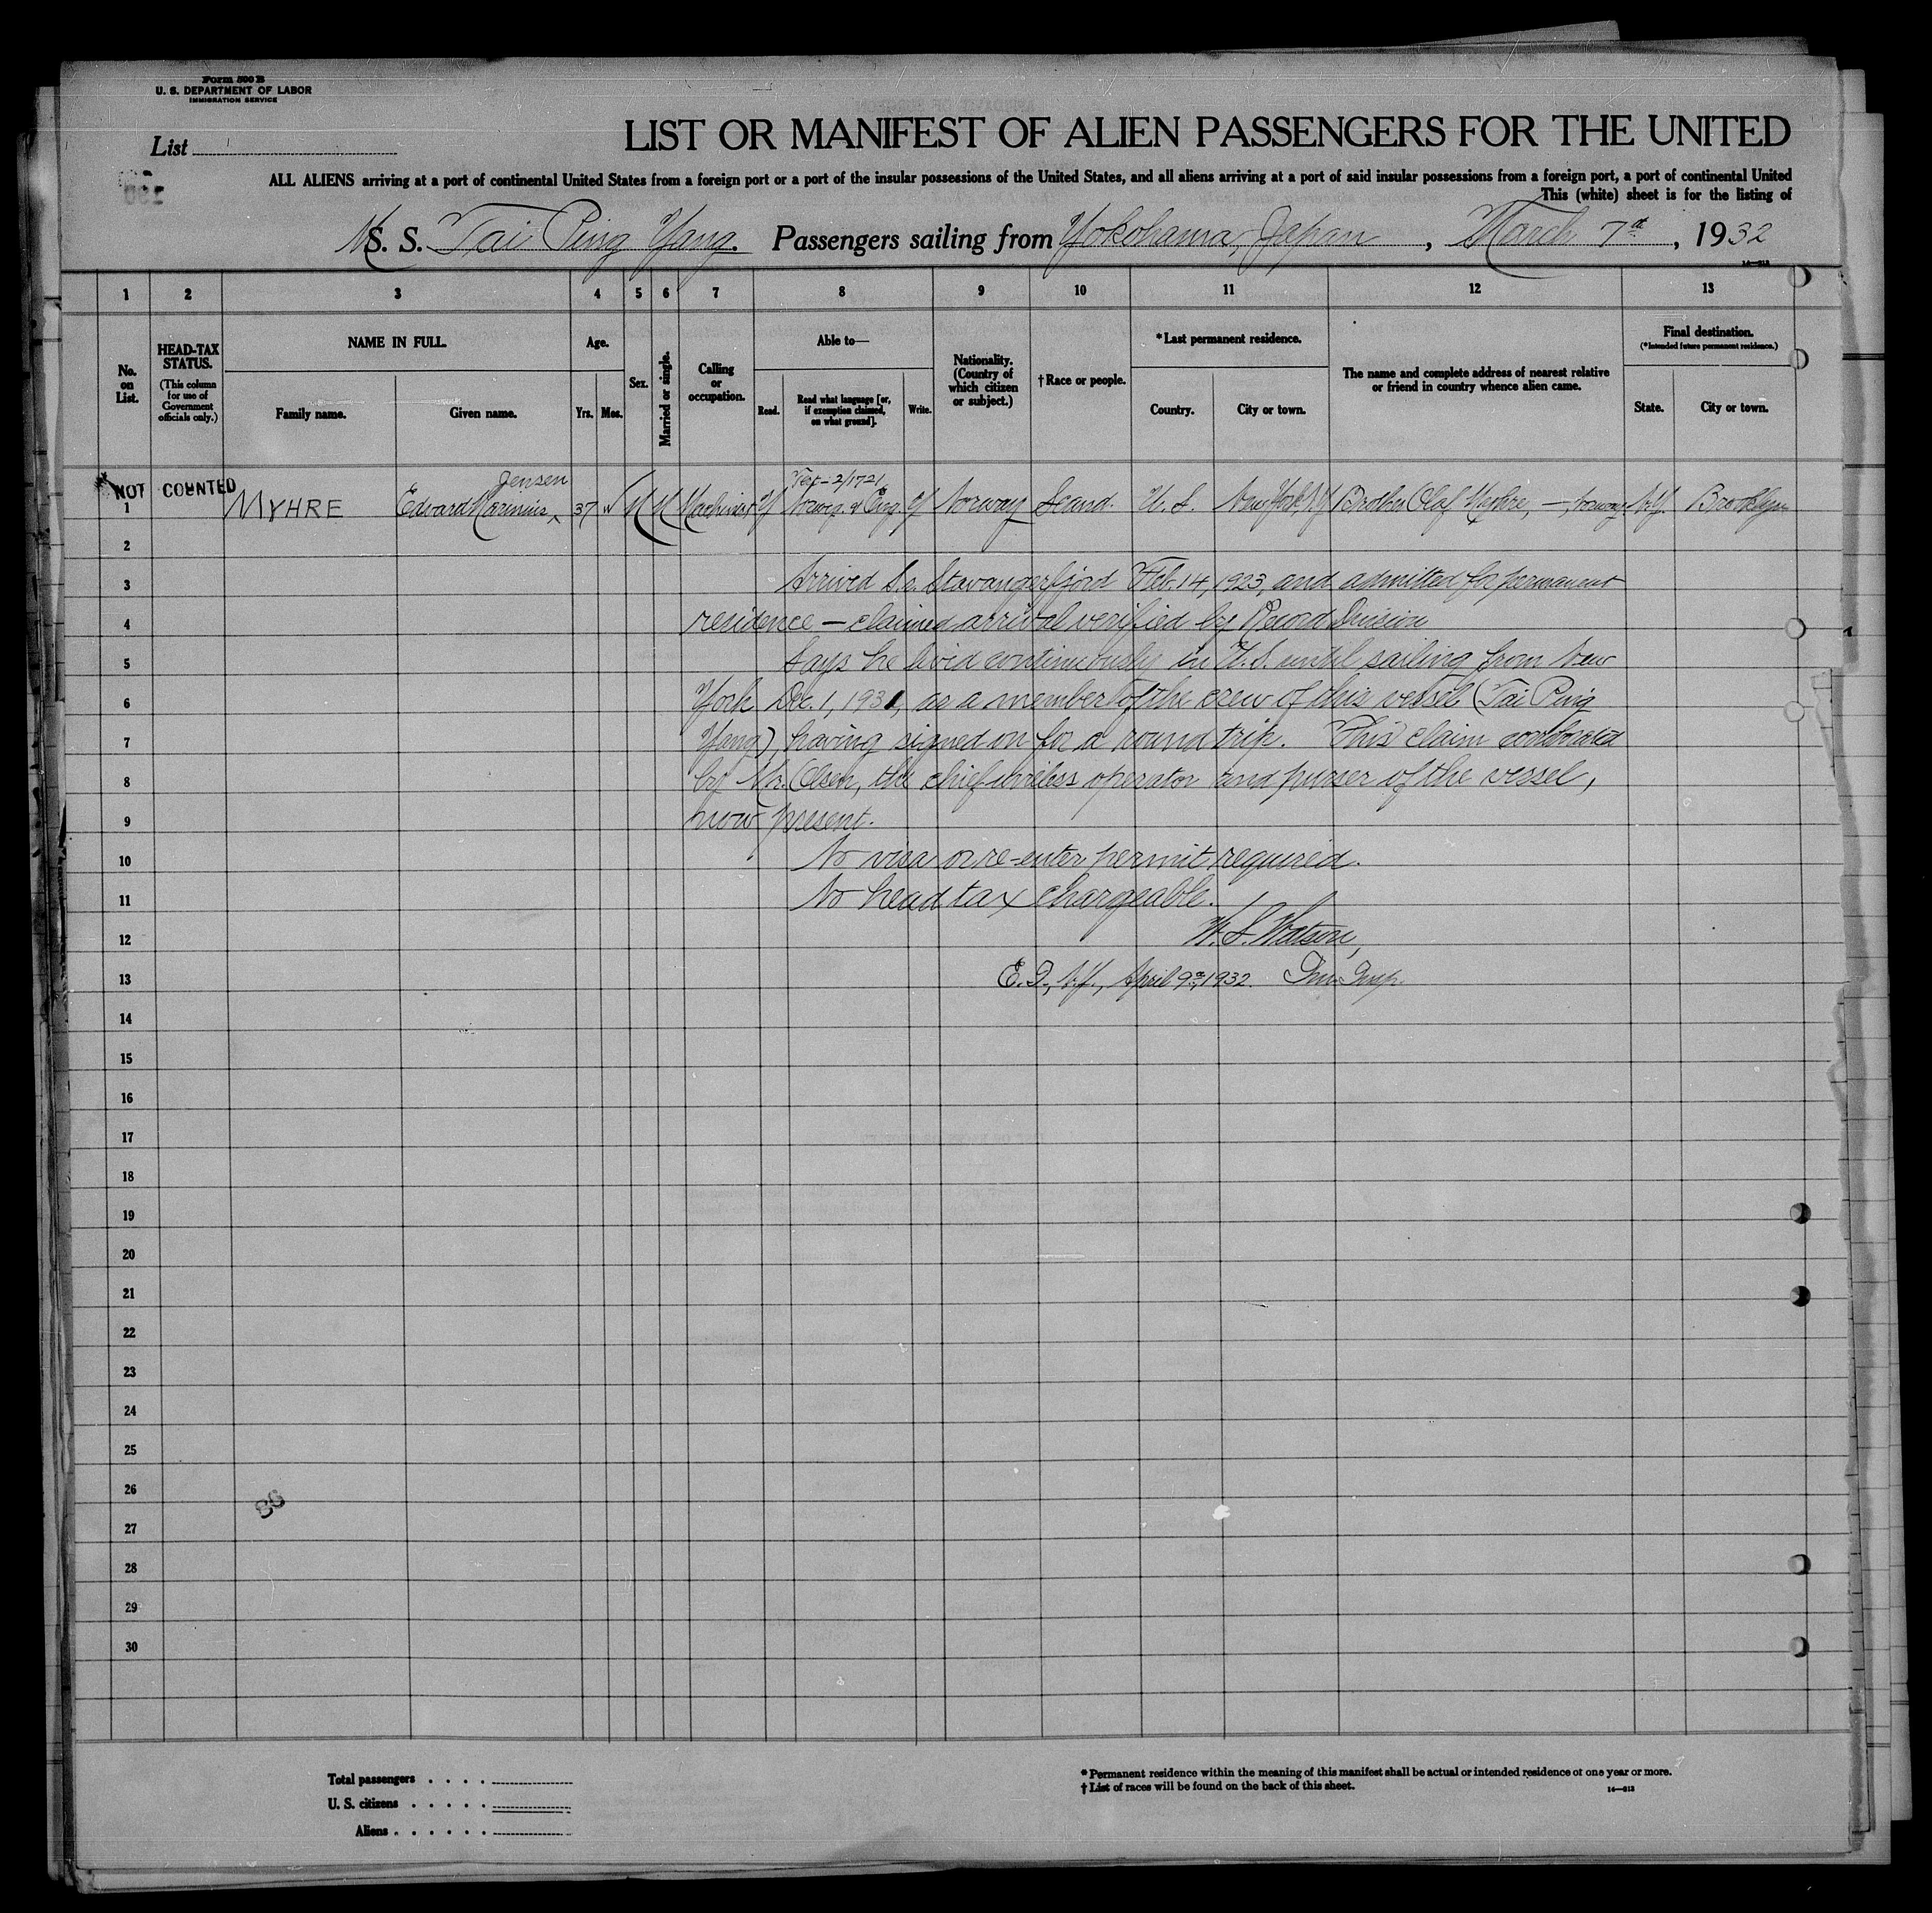 Form 500 B
U. S. DEPARTMENT OF LABOR
IMMIGRATION SERVICE
List
LIST OR MANIFEST OF ALIEN PASSENGERS FOR THE UNITED
ALL ALIENS arriving at a port of continental United States from a foreign port or a port of the insular possessions of the United States, and all aliens arriving at a port of said insular possessions from a foreign port, a port of continental United
This (white) sheet is for the listing of
M S. S. Tai Ping Yang. Passengers sailing from Yokohama, Japan, March 7th, 1932
1 2 3 4 5 6 7 8 9 10 11 12 13
No. on List.
HEAD-TAX STATUS.
(This column for use of Government officials only.)
NAME IN FULL.
Family name.
Given name.
Age.
Yrs.
Mos.
Sex.
Married or single.
Calling or occupation.
Able to—
Read.
Read what language [or, if exemption claimed, on what ground].
Write.
Nationality. (Country of which citizen or subject.)
†Race or people.
*Last permanent residence.
Country.
City or town.
The name and complete address of nearest relative or friend in country whence alien came.
Final destination.
(*Intended future permanent residence.)
State.
City or town.
Jensen
Tex-2/1721
NOT COUNTED
1 MYHRE Edvard Marinius 37 M M Machinist Y Norweg. & Eng. Y Norway Scand. U. S. New York, N.Y Brother Olaf Myhre, —, Norway N.Y. Brooklyn
2
3 Arrived S.s. Stavangerfjord Feb. 14, 1923, and admitted for permanent
4 residence — claimed arrival verified by Record Division
5 Says he lived continuously in U.S. until sailing from New
6 York Dec. 1, 1931, as a member of the crew of this vessel (Tai Ping
7 Yang), having signed on for a round trip. This claim corroborated
8 by Mr. Olsen, the chief wireless operator and purser of the vessel,
9 now present.
10 No visa or re-enter permit required.
11 No head tax chargeable.
12 W. S. Watson,
13 E. I., N.Y., April 9th, 1932. Imm. Insp.
14
15
16
17
18
19
20
21
22
23
24
25
26
86
27
28
29
30
Total passengers
U. S. citizens
Aliens
* Permanent residence within the meaning of this manifest shall be actual or intended residence of one year or more.
† List of races will be found on the back of this sheet.
14—813